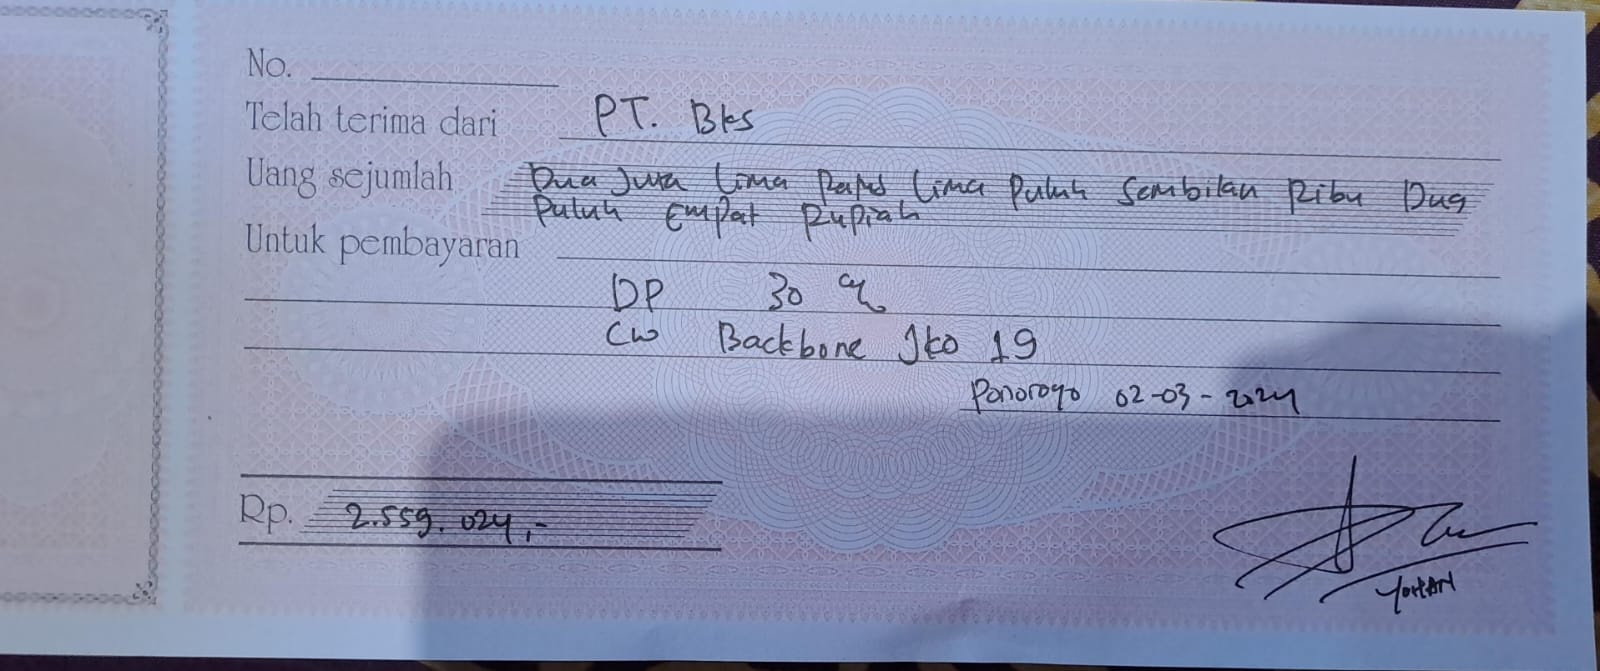 No.
Telah terima dari PT. Bks
Uang sejumlah Dua Juta Lima Ratus Lima Puluh Sembilan Ribu Dua
Puluh Empat Rupiah
Untuk pembayaran
DP 30 %
CW Backbone Jko 19
Ponorogo 02-03-2024
Rp. 2.559.024,-
YOHAN